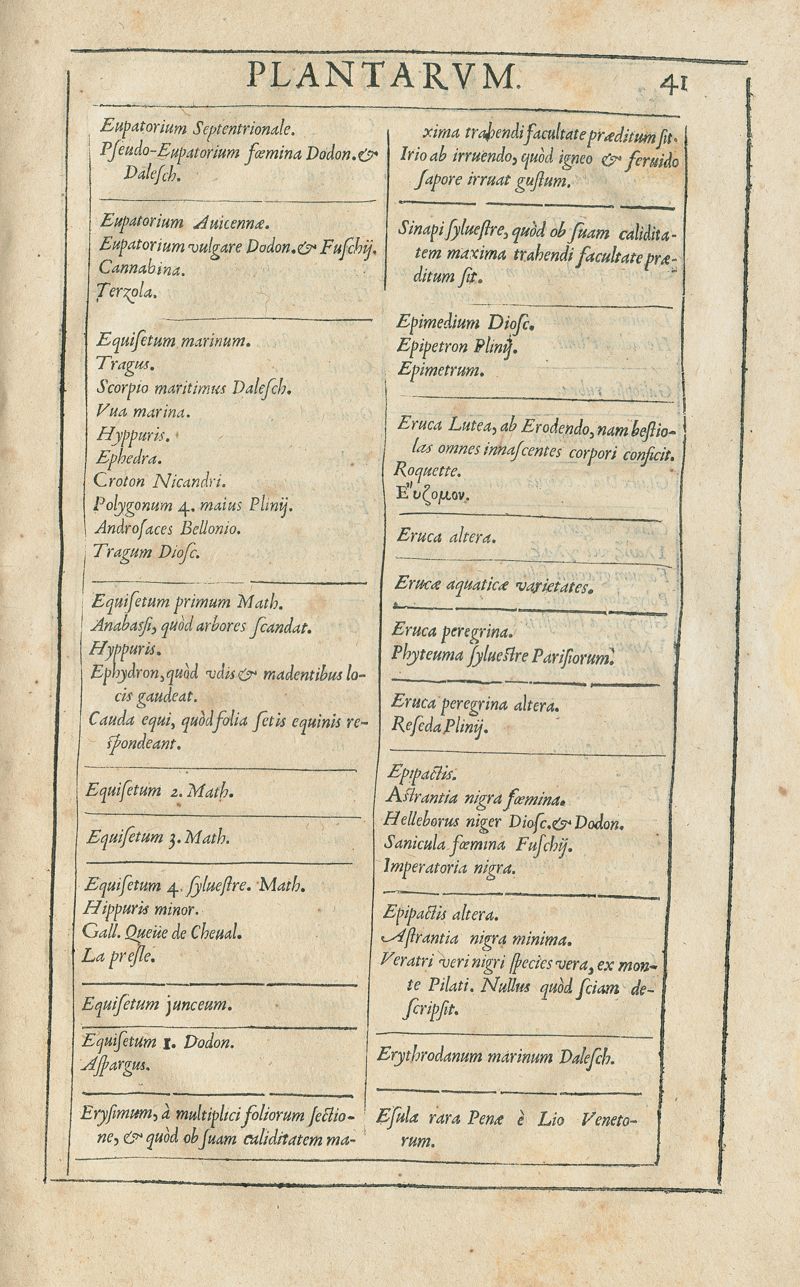 PLANTARVM.
41
Eupatorium Septentrionale.
Pſeudo-Eupatorium fœmina Dodon. &
Daleſch.
Eupatorium Auicennæ.
Eupatorium vulgare Dodon. & Fuſchij.
Cannabina.
Terzola.
Equiſetum marinum.
Tragus.
Scorpio maritimus Daleſch.
Vua marina.
Hyppuris.
Ephedra.
Croton Nicandri.
Polygonum 4. maius Plinij.
Androſaces Bellonio.
Tragum Dioſc.
Equiſetum primum Math.
Anabaſſi, quòd arbores ſcandat.
Hyppuris.
Ephydron, quòd vdis & madentibus lo-
cis gaudeat.
Cauda equi, quòd folia ſetis equinis re-
ſpondeant.
Equiſetum 2. Math.
Equiſetum 3. Math.
Equiſetum 4. ſylueſtre. Math.
Hippuris minor.
Gall. Queüe de Cheual.
La preſle.
Equiſetum junceum.
Equiſetum 1. Dodon.
Aſpargus.
Eryſimum, à multiplici foliorum ſectio-
ne, & quòd ob ſuam caliditatem ma-
xima trahendi facultate præditum ſit.
Irio ab irruendo, quòd igneo & feruido
ſapore irruat guſtum.
Sinapi ſylueſtre, quòd ob ſuam calidita-
tem maxima trahendi facultate præ-
ditum ſit.
Epimedium Dioſc.
Epipetron Plinij.
Epimetrum.
Eruca Lutea, ab Erodendo, nam beſtio-
las omnes innaſcentes corpori conficit.
Roquette.
Ε῎υζομον.
Eruca altera.
Erucæ aquaticæ varietates.
Eruca peregrina.
Phyteuma ſylueſtre Pariſiorum.
Eruca peregrina altera.
Reſeda Plinij.
Epipactis.
Aſtrantia nigra fœmina.
Helleborus niger Dioſc. & Dodon.
Sanicula fœmina Fuſchij.
Imperatoria nigra.
Epipactis altera.
Aſtrantia nigra minima.
Veratri veri nigri ſpecies vera, ex mon-
te Pilati. Nullus quòd ſciam de-
ſcripſit.
Erythrodanum marinum Daleſch.
Eſula rara Penæ è Lio Veneto-
rum.